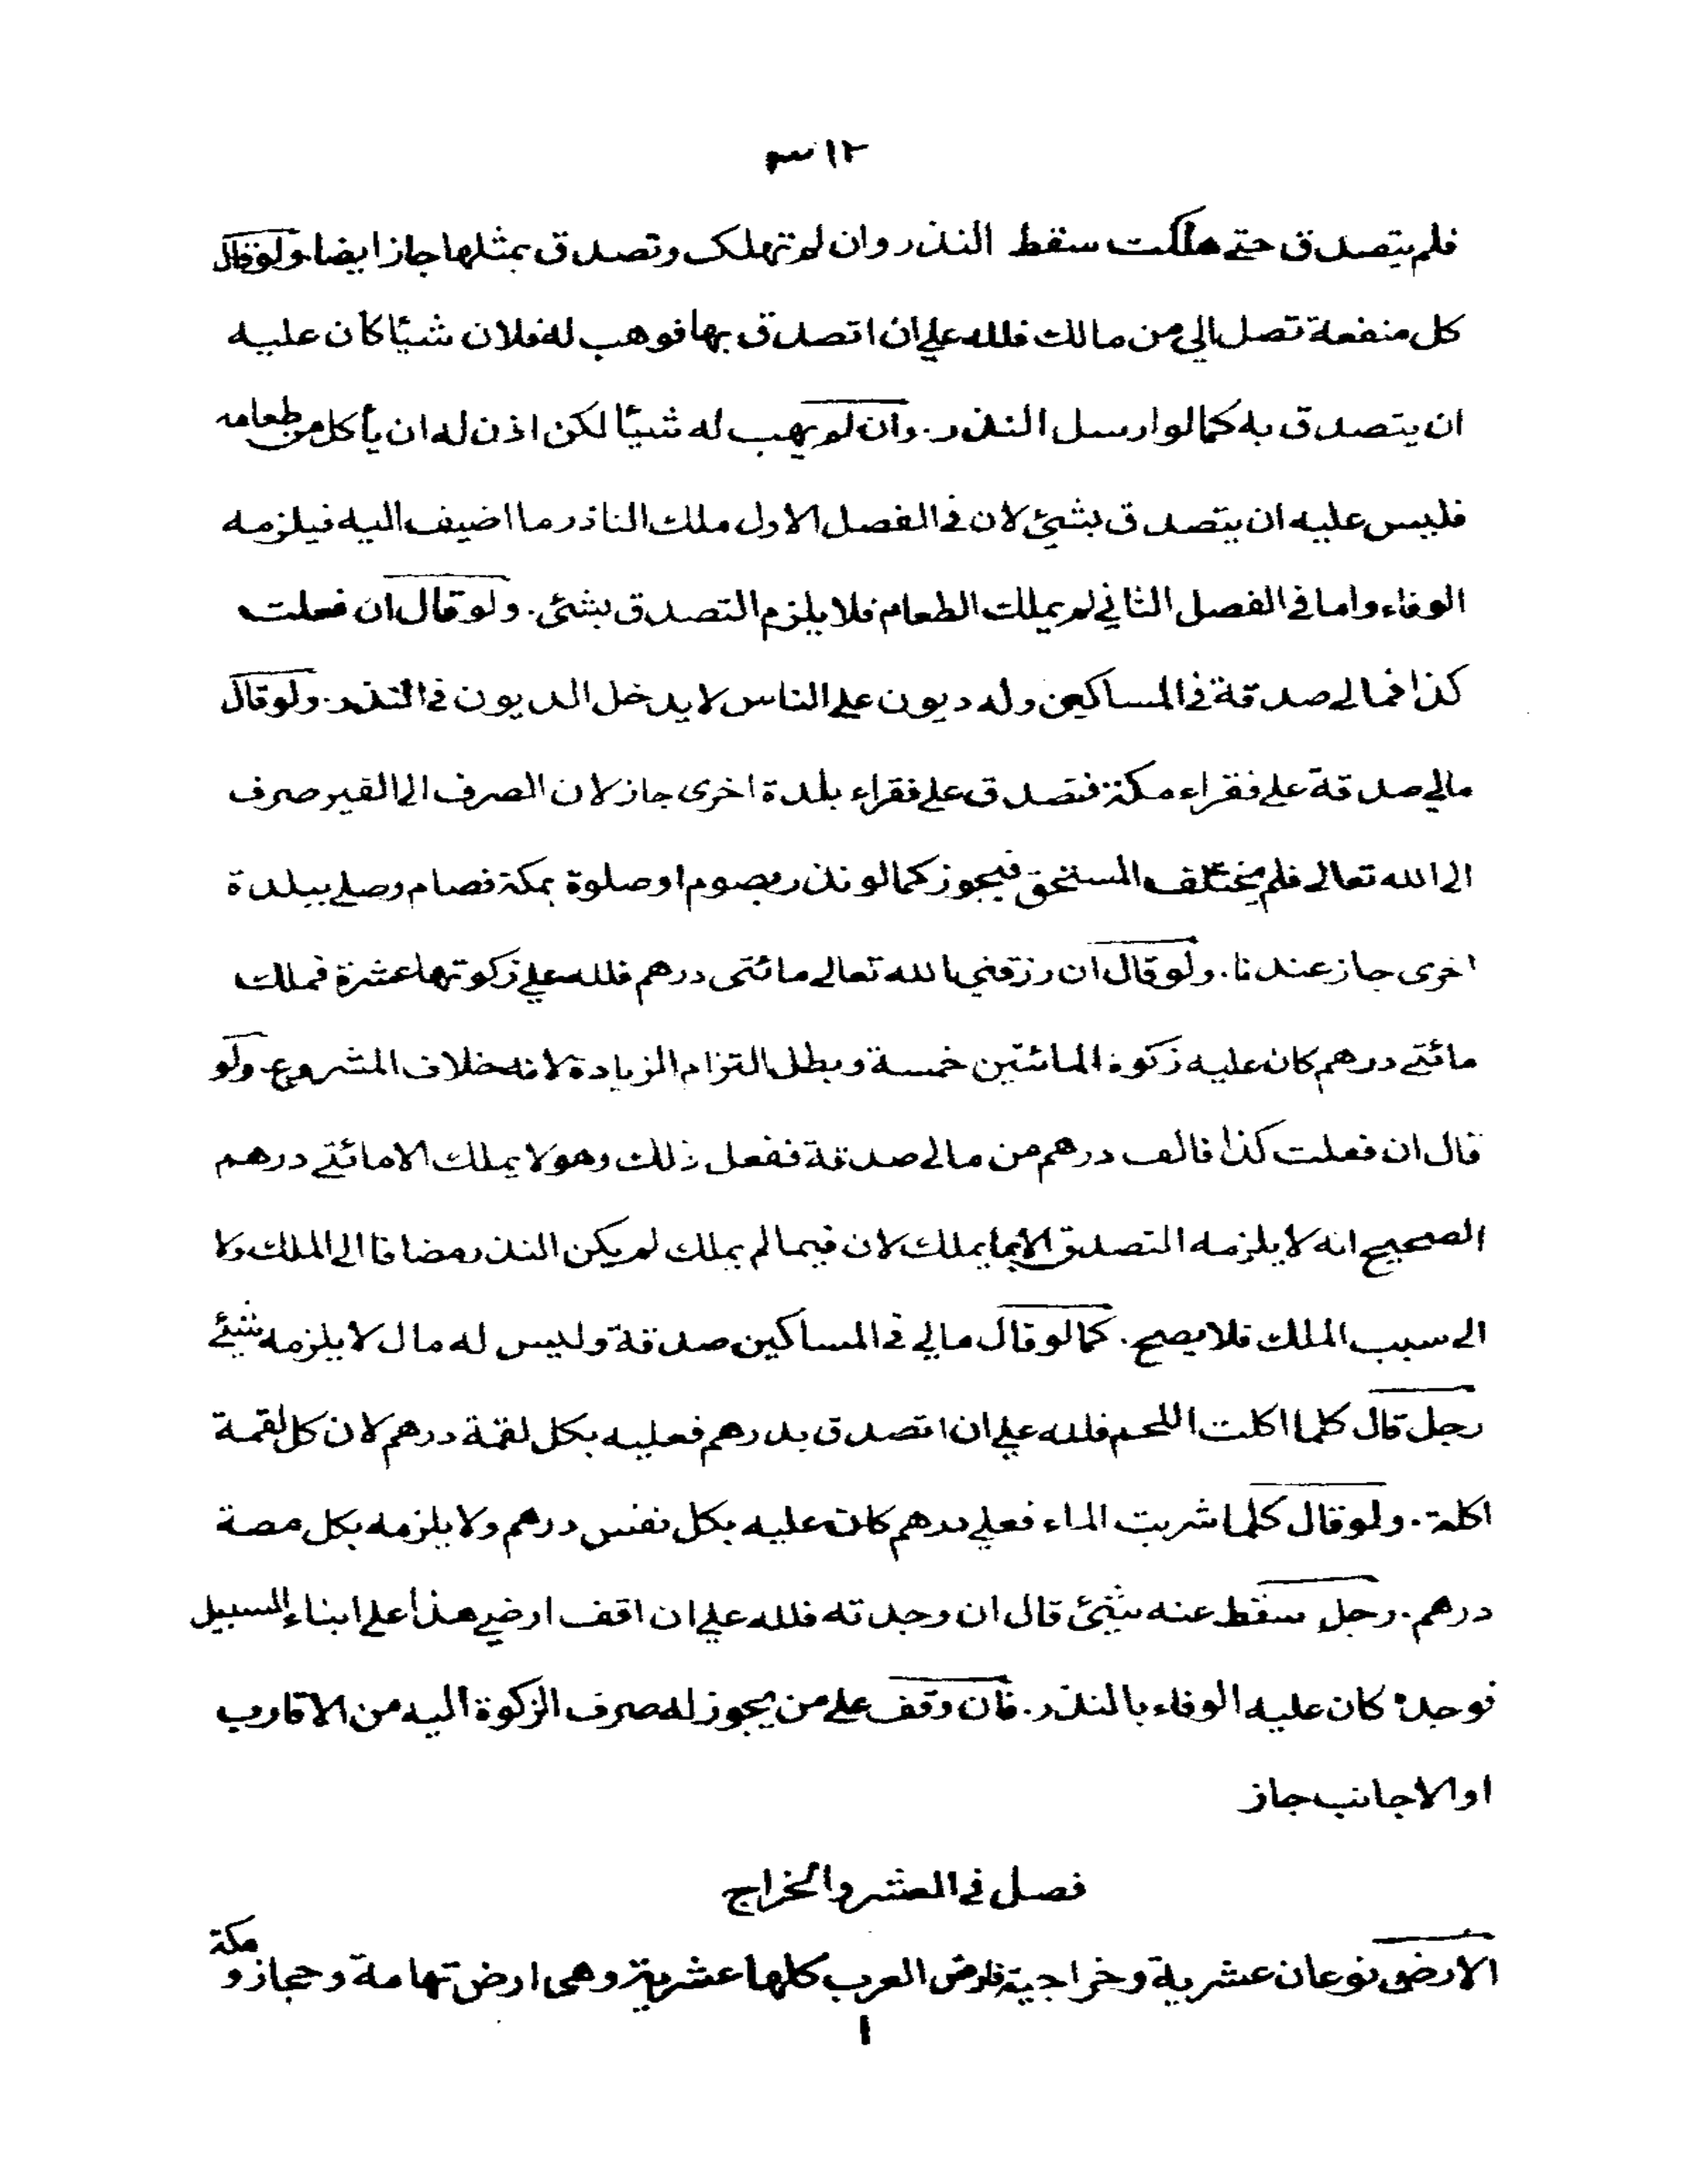 ٣١٢
فلم يتصدق حتے هلكت سقط النذر وان لم تهلک وتصدق بمثلها جاز ايضا ولوقال
كل منفعة تصل الي من مالك فلله علي ان اتصدق بها فوهب له فلان شيًا كان عليه
ان يتصدق به كما لو ارسل النذر. وان لم يهب له شيًا لكن اذن له ان يأكل من طعامه
فليس عليه ان يتصدق بشئ لان في الفصل الاول ملك الناذر ما اضيف اليه فيلزمه
الوفاء واما في الفصل الثاني لم يملك الطعام فلا يلزم التصدق بشئ. ولو قال ان فعلت
كذا فمالے صدقة في المساكين وله ديون علے الناس لا يدخل الديون في النذر. ولو قال
مالي صدقة علے فقراء مكة فتصدق علے فقراء بلدة اخرى جاز لان الصرف الے الفقير صرف
الے الله تعالے فلم يختلف المستحق فيجوز كما لو نذر بصوم او صلوة بمكة فصام وصلے ببلدة
اخرى جاز عندنا. ولو قال ان رزقني الله تعالے مائتى درهم فلله علي زكوتها عشرة فملك
مائتے درهم كان عليه زكوة المائتين خمسة وبطل التزام الزيادة لانه خلاف المشروع. ولو
قال ان فعلت كذا فالف درهم من مالے صدقة ففعل ذلك وهو لا يملك الا مائتے درهم
الصحيح انه لا يلزمه التصدق الا بما يملك لان فيما لم يملك لم يكن النذر مضافا الے الملك ولا
الے سبب الملك فلا يصح. كما لو قال مالي في المساكين صدقة وليس له مال لا يلزمه شئے
رجل قال كلما اكلت اللحم فلله علي ان اتصدق بدرهم فعليه بكل لقمة درهم لان كل لقمة
اكلة. ولو قال كلما شربت الماء فعلے درهم كان عليه بكل نفس درهم ولا يلزمه بكل مصة
درهم. رجل سقط عنه شئ قال ان وجدته فلله علي ان اقف ارضي هذا علے ابناء السبيل
فوجده كان عليه الوفاء بالنذر. فان وقف علے من يجوز له صرف الزكوة اليه من الاقارب
او الاجانب جاز
فصل في العشر والخراج
الارض نوعان عشرية وخراجية فارض العرب كلها عشرية وهى ارض تهامة وحجاز و مكة
ا